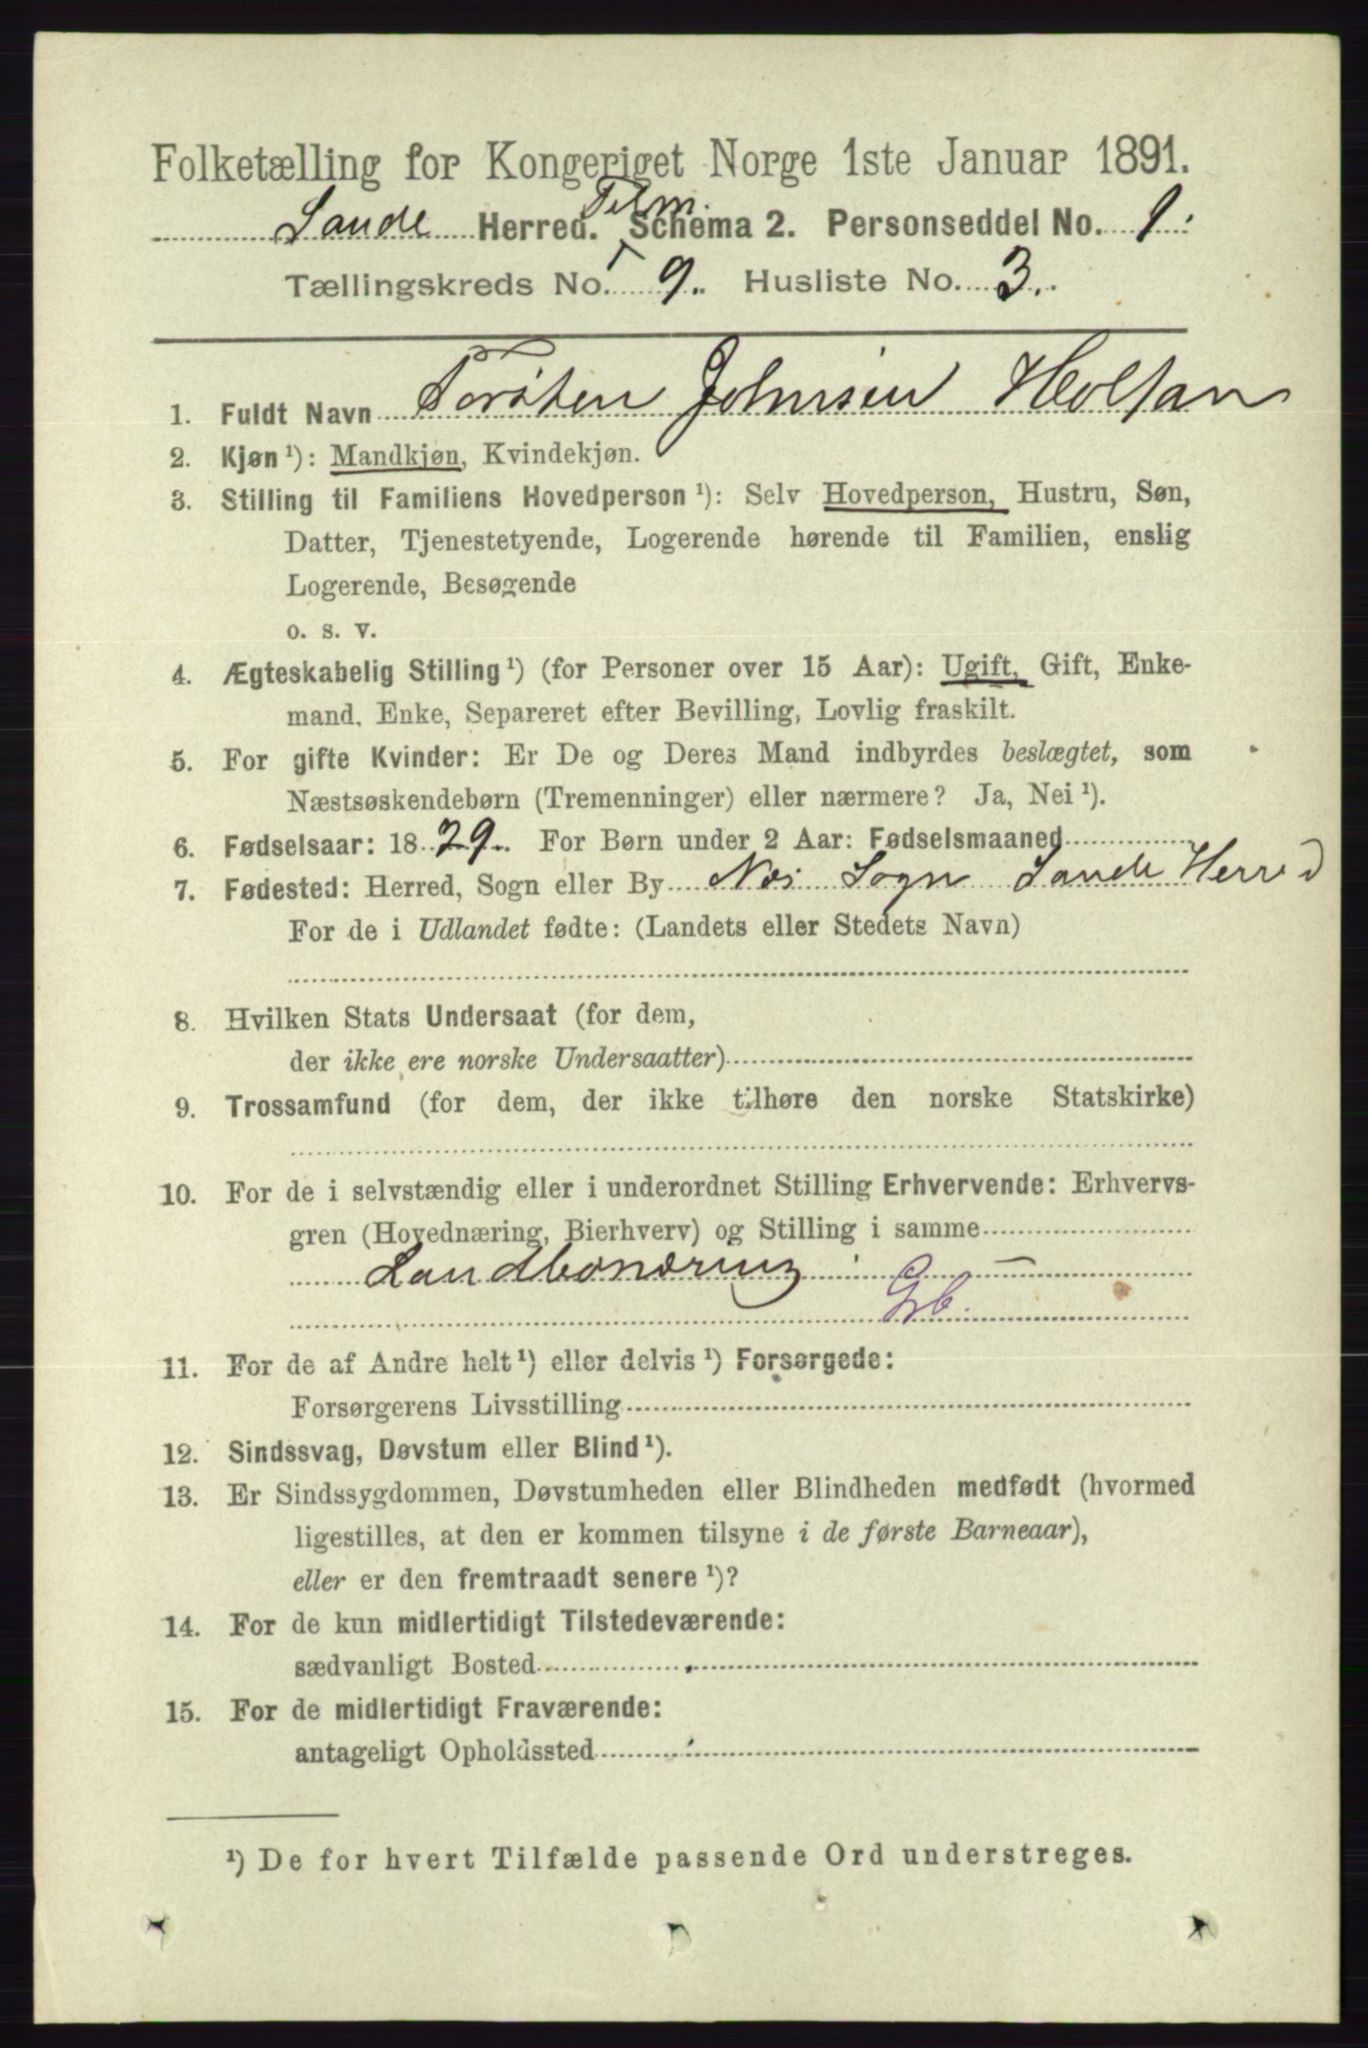 Folketælling for Kongeriget Norge 1ste Januar 1891.
Telm.
Saude Herred. Schema 2. Personseddel No. 1.
Tællingskreds No. 9. Husliste No. 3.
1. Fuldt Navn Torsten Johnsen Holtan
2. Kjøn ¹): Mandkjøn, Kvindekjøn.
3. Stilling til Familiens Hovedperson ¹): Selv Hovedperson, Hustru, Søn,
Datter, Tjenestetyende, Logerende hørende til Familien, enslig
Logerende, Besøgende
o. s. v.
4. Ægteskabelig Stilling ¹) (for Personer over 15 Aar): Ugift, Gift, Enke-
mand, Enke, Separeret efter Bevilling, Lovlig fraskilt.
5. For gifte Kvinder: Er De og Deres Mand indbyrdes beslægtet, som
Næstsøskendebørn (Tremenninger) eller nærmere? Ja, Nei ¹).
6. Fødselsaar: 1829. For Børn under 2 Aar: Fødselsmaaned
7. Fødested: Herred, Sogn eller By Nes Sogn Saude Herred
For de i Udlandet fødte: (Landets eller Stedets Navn)
8. Hvilken Stats Undersaat (for dem,
der ikke ere norske Undersaatter)
9. Trossamfund (for dem, der ikke tilhøre den norske Statskirke)
10. For de i selvstændig eller i underordnet Stilling Erhvervende: Erhvervs-
gren (Hovednæring, Bierhverv) og Stilling i samme
Landbonæring —
Gb.
11. For de af Andre helt ¹) eller delvis ¹) Forsørgede:
Forsørgerens Livsstilling
12. Sindssvag, Døvstum eller Blind ¹).
13. Er Sindssygdommen, Døvstumheden eller Blindheden medfødt (hvormed
ligestilles, at den er kommen tilsyne i de første Barneaar),
eller er den fremtraadt senere ¹)?
14. For de kun midlertidigt Tilstedeværende:
sædvanligt Bosted
15. For de midlertidigt Fraværende:
antageligt Opholdssted
¹) De for hvert Tilfælde passende Ord understreges.